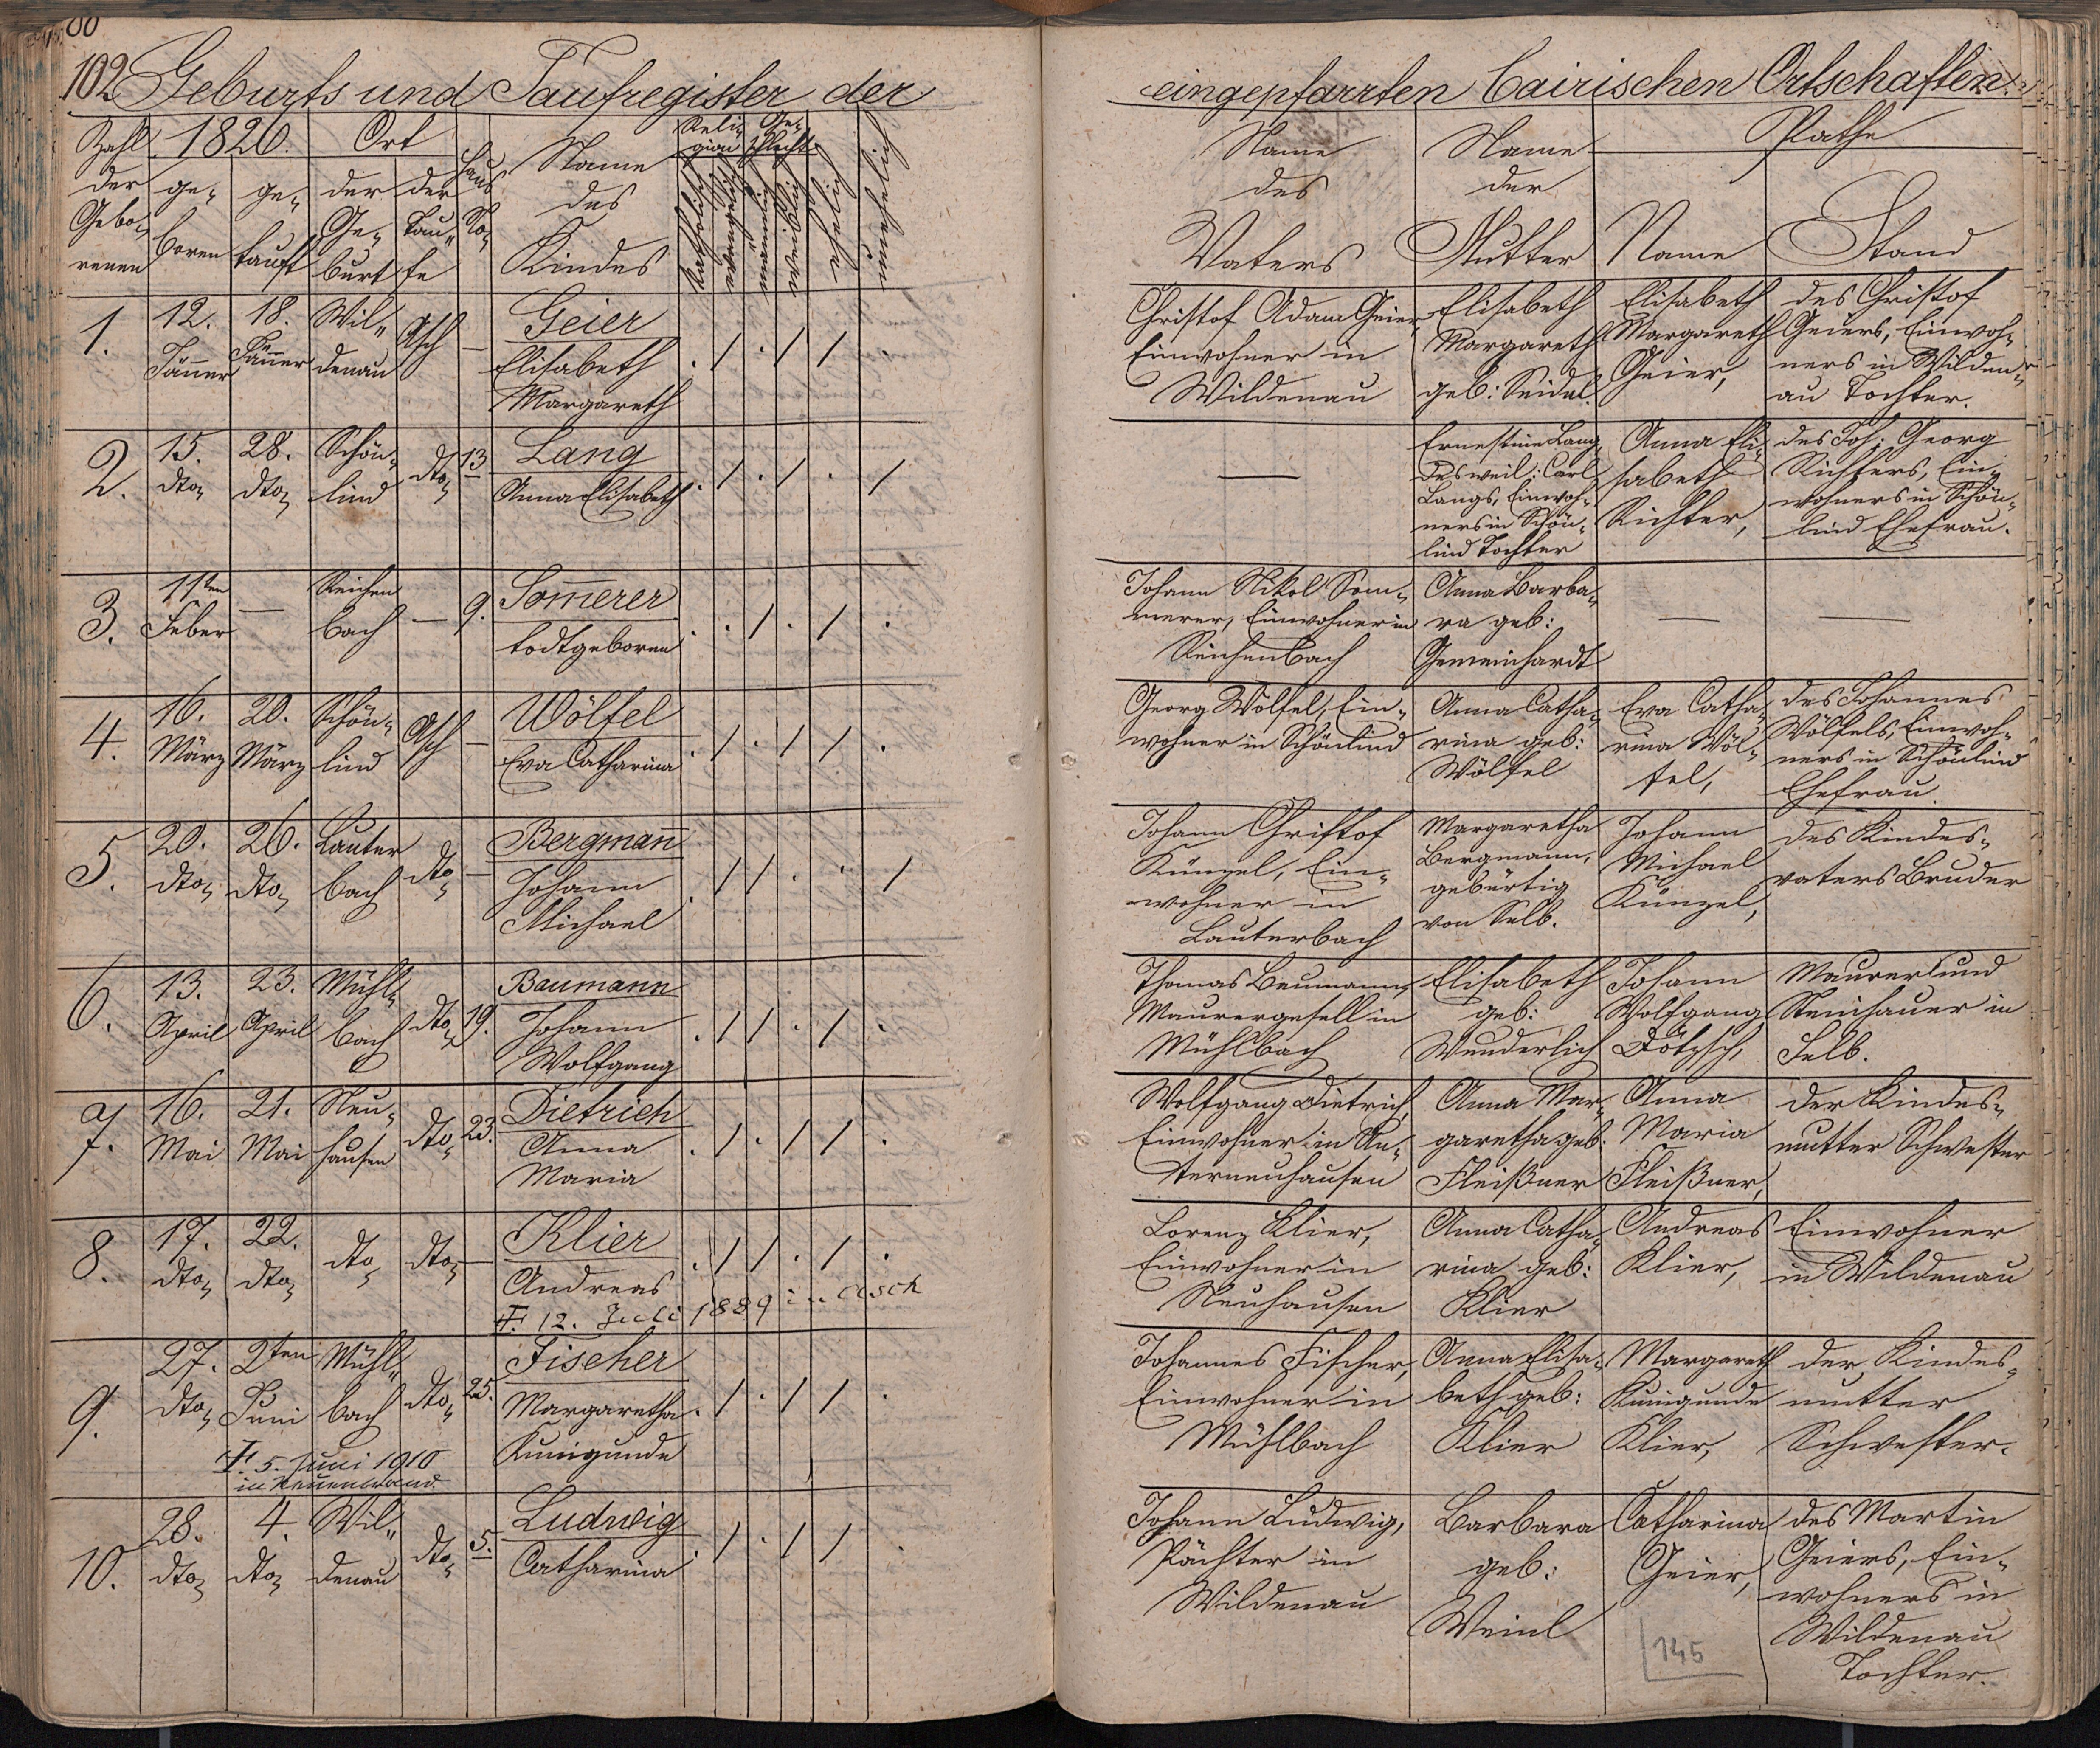 102 Geburts und Taufregister der
eingepfarrten bairischen Ortschaften.
Zahl der Gebo- renen
1826.
ge- boren
ge- tauft
Ort
der Ge- burt
der Tau- fe
Haus No-
Name des Kindes
Reli- gion
katholisch
evangelisch
Ge- schlecht
männlich
weiblich
ehelich
unehelich
Name des Vaters
Name der Mutter
Pathe
Name
Stand
1.
12. Jänner
18. Jänner
Wil- denau
Asch
—
Geier
Elisabeth
Margareth
. / . / / .
Christof Adam Geier,
Einwohner in
Wildenau
Elisabeth
Margareth
geb: Seidel.
Elisabeth
Margareth
Geier,
des Christof
Geiers, Einwoh-
ners in Wilden-
au Tochter.
2.
15. dto
28. dto
Schön- lind
dto
13
Lang
Anna Elisabeth
. / . / . /
—
Ernestine Lang,
des weil: Carl
Langs, Einwoh-
ners in Schön-
lind Tochter
Anna Eli-
sabeth
Richter,
des Joh: Georg
Richters, Ein-
wohners in Schön-
lind Ehefrau.
3.
11ten Feber
—
Reichen bach
—
9.
Som̅erer
todtgeboren
. . / . / .
Johann Nikol Som-
merer, Einwohner in
Reichenbach
Anna Barba-
ra geb:
Gemeinhardt
—
—
4.
16. März
20. März
Schön- lind
Asch
—
Wölfel
Eva Catharina
. / . / / .
Georg Wölfel, Ein-
wohner in Schönlind
Anna Catha-
rina geb:
Wölfel
Eva Catha-
rina Wöl-
fel,
des Johannes
Wölfels, Einwoh-
ners in Schönlind
Ehefrau.
5.
20. dto
26. dto
Lauter bach
dto
—
Bergman̅
Johann
Michael
. / / . . /
Johann Christof
Künzel, Ein-
wohner in
Lauterbach
Margaretha
Bergmann,
gebürtig
von Selb.
Johann
Michael
Künzel,
des Kindes-
vaters Bruder
6.
13. April
23. April
Mühl- bach
dto
19.
Baumann
Johann
Wolfgang
. / / . / .
Thomas Baumann,
Maurergesell in
Mühlbach
Elisabeth
geb:
Wunderlich
Johann
Wolfgang
Dötzsch,
Maurer und
Steinhauer in
Selb.
7.
16. Mai
21. Mai
Neu- hausen
dto
23.
Dietrich
Anna
Maria
. / . / / .
Wolfgang Dietrich,
Einwohner in Un-
terneuhausen
Anna Mar-
garetha geb:
Fleißner
Anna
Maria
Fleißner,
der Kindes-
mutter Schwester
8.
17. dto
22. dto
dto
dto
—
Klier
Andreas
. / / . / .
†. 12. Juli 1889 in Asch
Lorenz Klier,
Einwohner in
Neuhausen
Anna Catha-
rina geb:
Klier
Andreas
Klier,
Einwohner
in Wildenau
9.
27. dto
2ten Juni
Mühl- bach
dto
25.
Fischer
Margaretha
Kunigunde
. / . / / .
†. 5. Juni 1910
in Neuenbrand.
Johannes Fischer,
Einwohner in
Mühlbach
Anna Elisa-
beth geb:
Klier
Margareth
Kunigunde
Klier,
der Kindes-
mutter
Schwester.
10.
28. dto
4. dto
Wil- denau
dto
5.
Ludwig
Catharina
. / . / / .
Johann Ludwig,
Pächter in
Wildenau
Barbara
geb:
Weinl
Catharina
Geier,
des Martin
Geiers, Ein-
wohners in
Wildenau
Tochter.
145